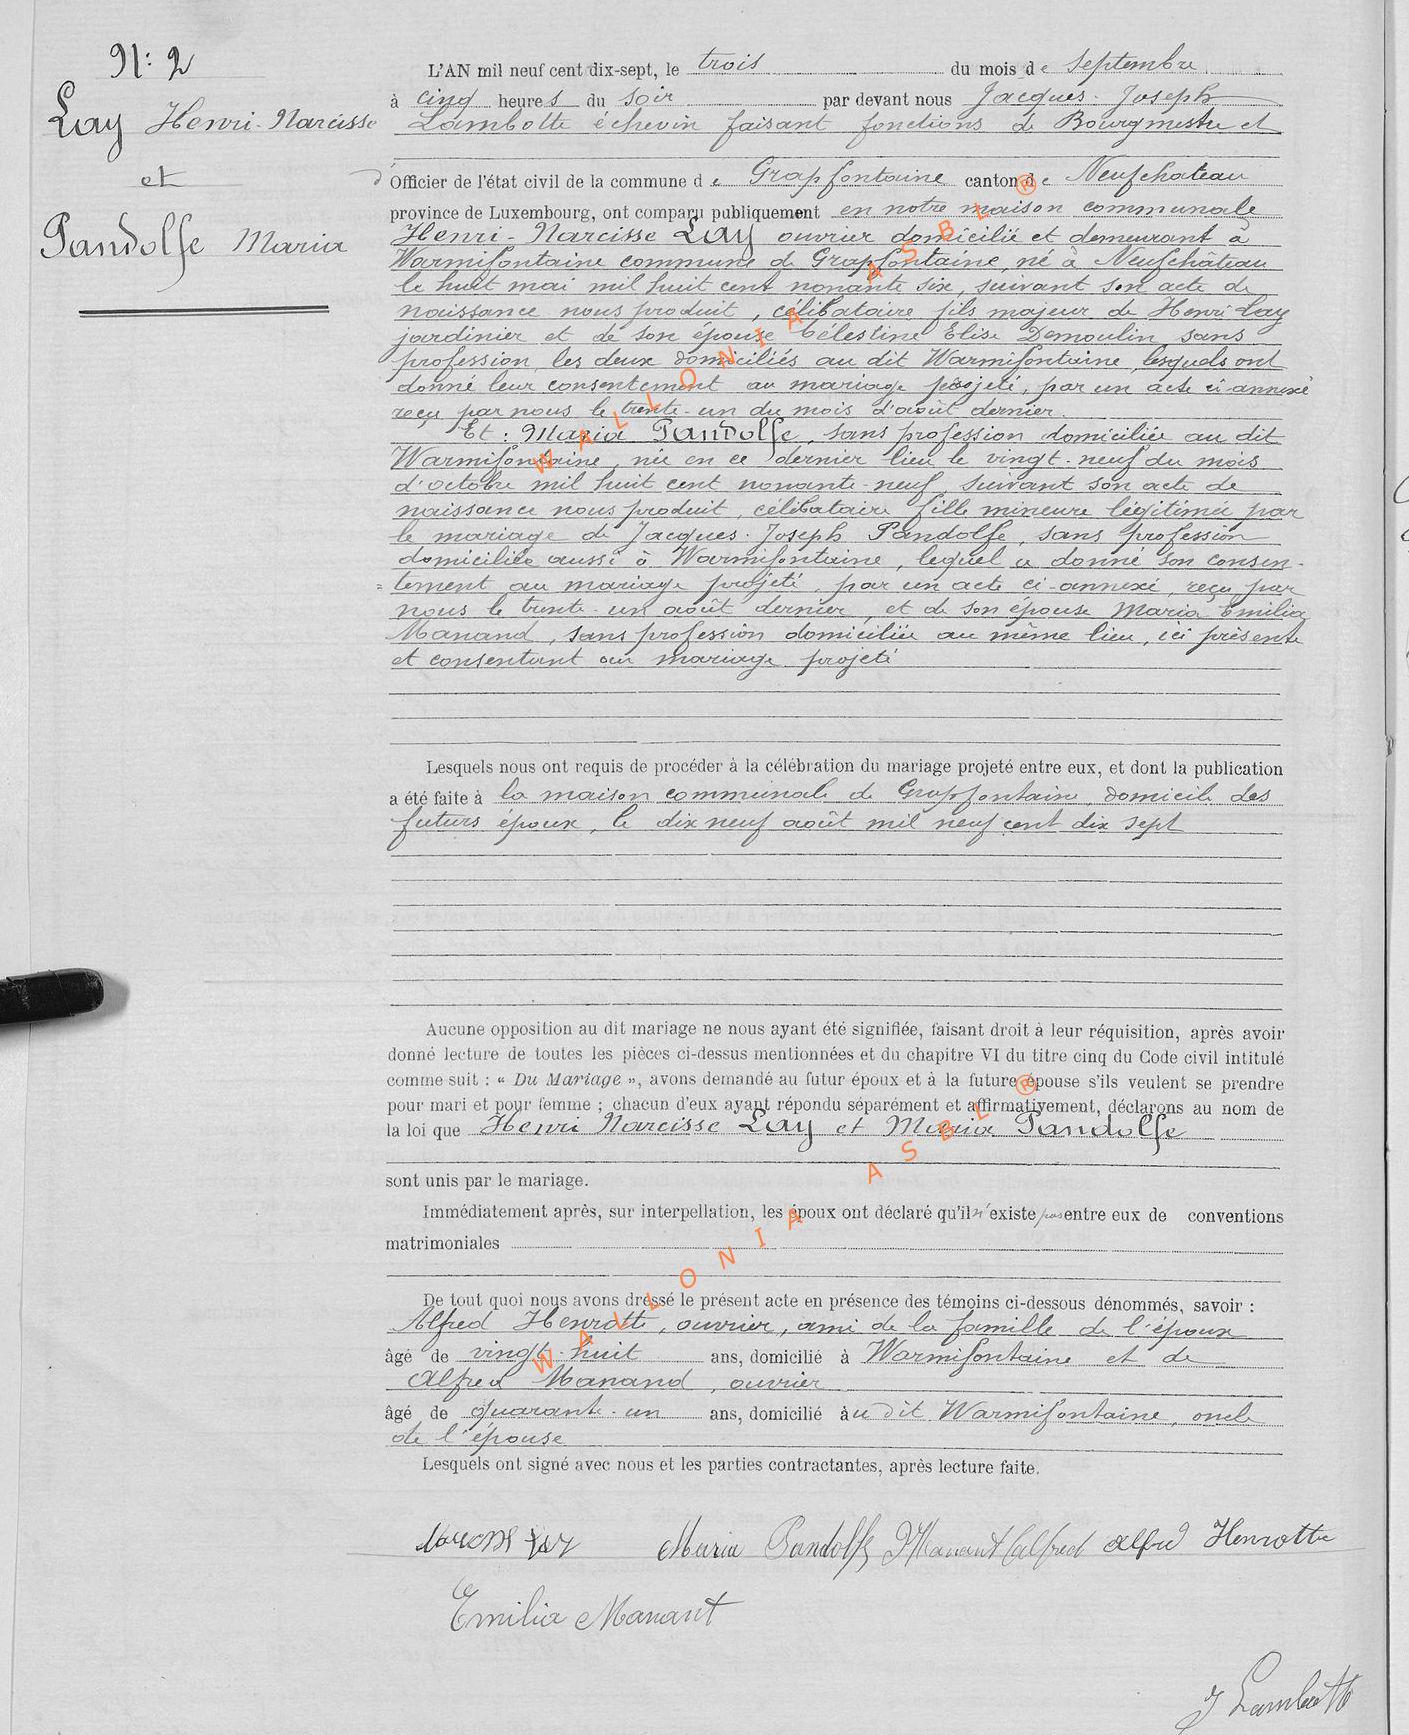 N: 2
Lay Henri-Narcisse
et
Pandolfe Maria
L'AN mil neuf cent dix-sept, le trois du mois de septembre
à cinq heures du soir par devant nous Jacques-Joseph
Lambotte échevin faisant fonctions de Bourgmestre et
Officier de l'état civil de la commune de Grapfontaine canton de Neufchateau
province de Luxembourg, ont comparu publiquement en notre maison communale
Henri-Narcisse Lay ouvrier domicilié et demeurant à
Warmifontaine commune de Grapfontaine, né à Neufchâteau
le huit mai mil huit cent nonante six, suivant son acte de
naissance nous produit, célibataire fils majeur de Henri Lay
jardinier et de son épouse Célestine Elise Demoulin sans
profession, les deux domiciliés au dit Warmifontaine, lesquels ont
donné leur consentement au mariage projeté, par un acte ci-annexé
reçu par nous le trente-un du mois d'août dernier.
Et : Maria Pandolfe, sans profession domiciliée au dit
Warmifontaine, née en ce dernier lieu le vingt-neuf du mois
d'octobre mil huit cent nonante-neuf, suivant son acte de
naissance nous produit, célibataire fille mineure légitimée par
le mariage de Jacques-Joseph Pandolfe, sans profession
domiciliée aussi à Warmifontaine, lequel a donné son consen-
=tement au mariage projeté, par un acte ci-annexé, reçu par
nous le trente-un août dernier, et de son épouse Maria Emilia
Manand, sans profession domiciliée au même lieu, ici présente
et consentant au mariage projeté
Lesquels nous ont requis de procéder à la célébration du mariage projeté entre eux, et dont la publication
a été faite à la maison communale de Grapfontaine, domicile des
futurs époux, le dix neuf août mil neuf cent dix sept
Aucune opposition au dit mariage ne nous ayant été signifiée, faisant droit à leur réquisition, après avoir
donné lecture de toutes les pièces ci-dessus mentionnées et du chapitre VI du titre cinq du Code civil intitulé
comme suit : « Du Mariage », avons demandé au futur époux et à la future épouse s'ils veulent se prendre
pour mari et pour femme ; chacun d'eux ayant répondu séparément et affirmativement, déclarons au nom de
la loi que Henri Narcisse Lay et Maria Pandolfe
sont unis par le mariage.
Immédiatement après, sur interpellation, les époux ont déclaré qu'il n'existe pas entre eux de conventions
matrimoniales
De tout quoi nous avons dressé le présent acte en présence des témoins ci-dessous dénommés, savoir :
Alfred Henrotte, ouvrier, ami de la famille de l'époux
âgé de vingt-huit ans, domicilié à Warmifontaine et de
Alfred Manand, ouvrier
âgé de quarante-un ans, domicilié au dit Warmifontaine, oncle
de l'épouse
Lesquels ont signé avec nous et les parties contractantes, après lecture faite.
Lay Maria Pandolfe Manant Alfred Alfred Henrotte
Emilia Manant
J Lambotte
WALLONIA ASBL®
WALLONIA ASBL®